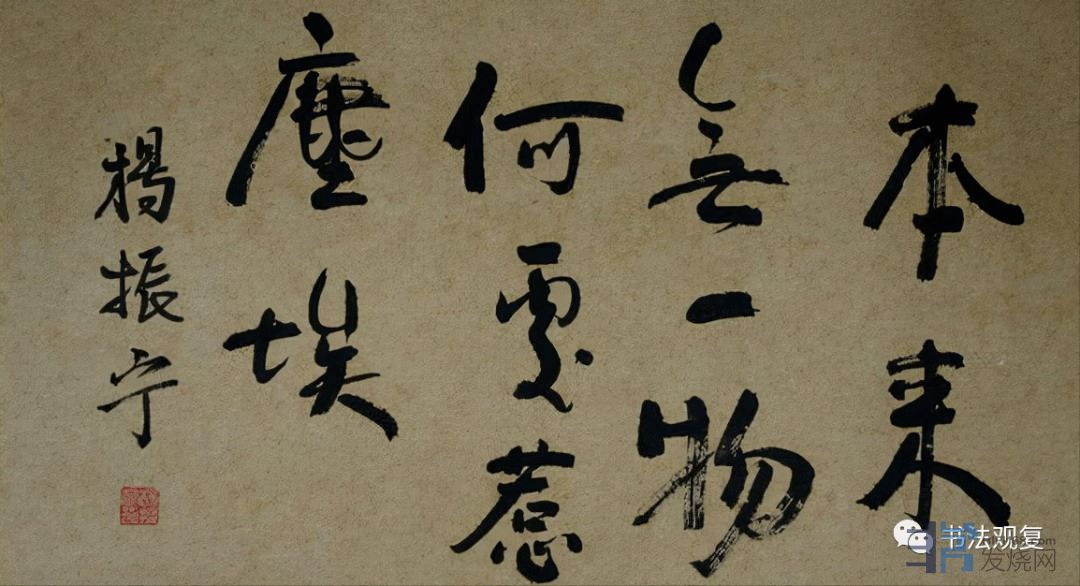 本来
無一物
何處惹
塵埃
楊振宁
书法观复
发烧网